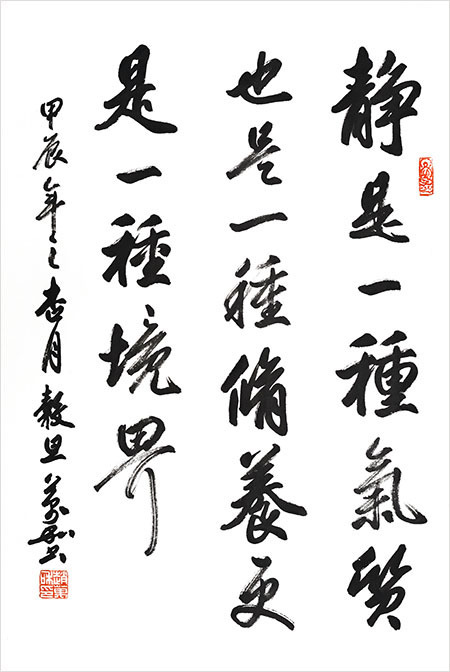 静是一種氣质
也是一種脩養更
是一種境界
甲辰年之杏月穀旦